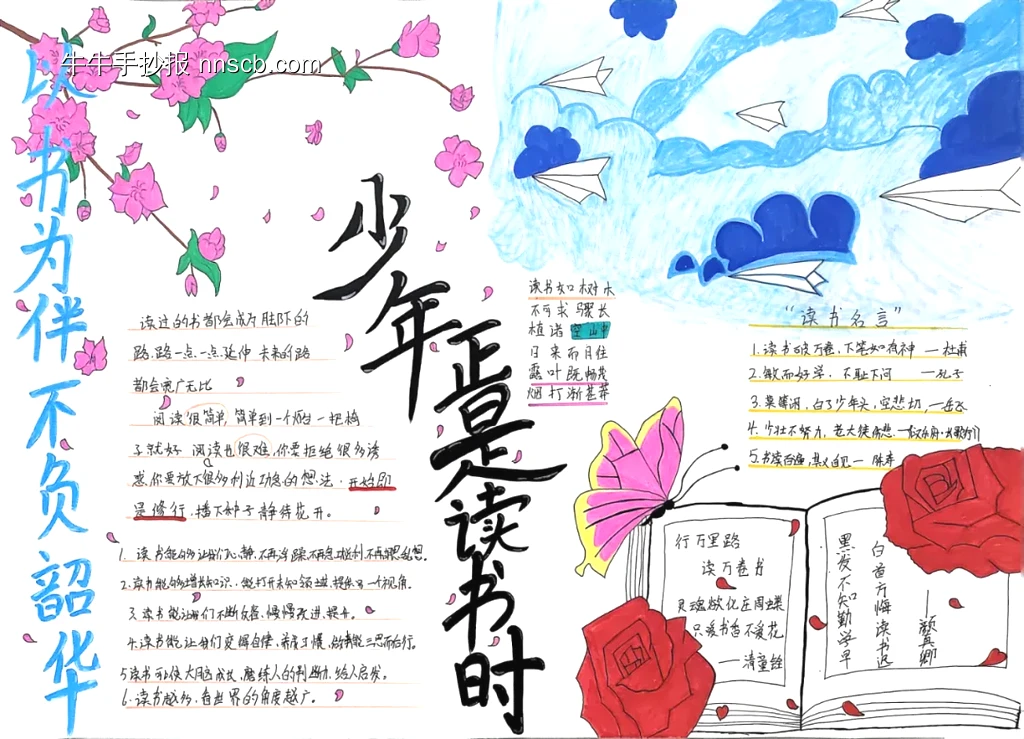 牛牛手抄报 nnscb.com
以书为伴不负韶华
少年正是读书时
读过的书都会成为脚下的
路.路一点一点延伸 未来的路
都会宽广无比
阅读很简单,简单到一个烟台一把椅
子就好 阅读也很难,你要拒绝很多诱
惑.你要放下很多利近功名的想法,开始即
是修行,播下种子静待花开。
1. 读书能够让我们心静,不再浮躁不再急功近利不再胡思乱想.
2.读书能够增长知识,能打开未知领域提供另一个视角。
3.读书能让我们不断反省、慢慢改进、提升。
4.读书能让我们变得自律,养成习惯,做事能三思而后行。
5读书可使大脑成长,磨练人的判断力,给人启发。
6.读书越多,看世界的角度越广。
读书如树木
不可求骤长
植诸空山中
日来而月往
露叶既畅茂
烟打渐苍莽
“读书名言”
1.读书破万卷,下笔如有神 —杜甫
2.敏而好学,不耻下问 —孔子
3.莫等闲,白了少年头,空悲切,—岳飞
4.少壮不努力,老大徒伤悲.
5.书读百遍,其义自见— 陈寿
行万里路
读万卷书
灵魂欲化庄周蝶
只爱书香不爱花
——清童铨
黑发不知勤学早
白首方悔读书迟
—颜真卿